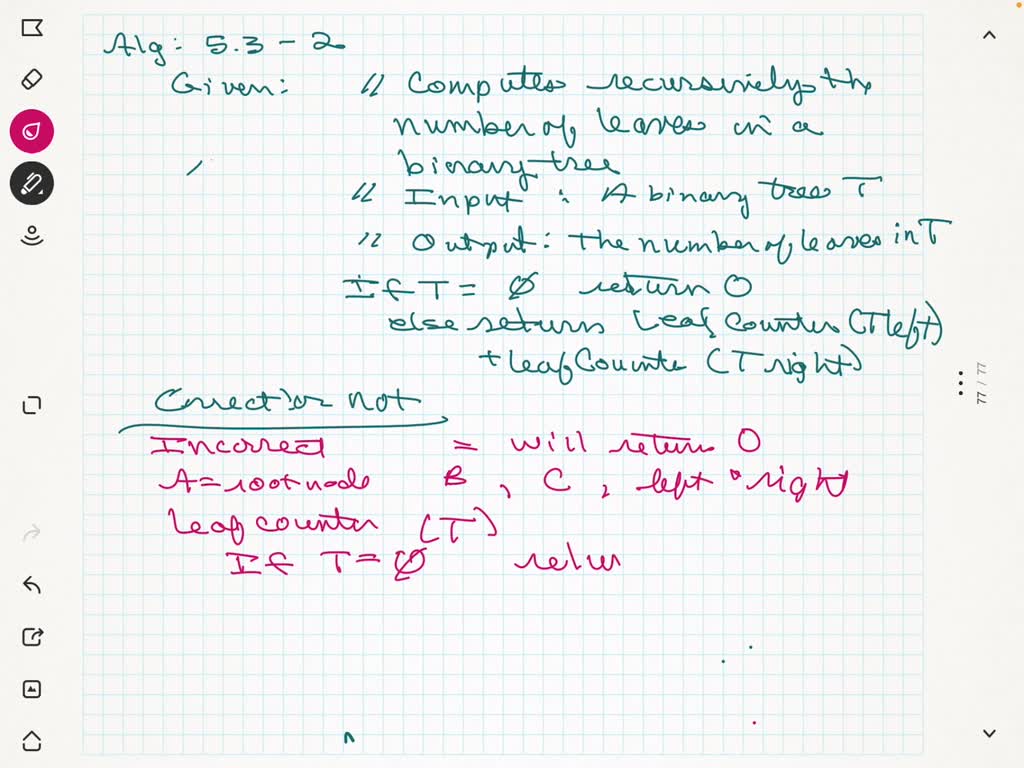 Alg: 5.3 - 2
Given: // Computes recursively the
number of leaves in a
binary tree
// Input : A binary tree T
// Output: The number of leaves in T
If T = ∅ return 0
else returns Leaf Counter (T left)
+ leaf Counte (T right)
Correct or not
Incorrect = will return 0
A = root node B , C , left right
Leaf counter (T)
If T = ∅ retur
77 / 77